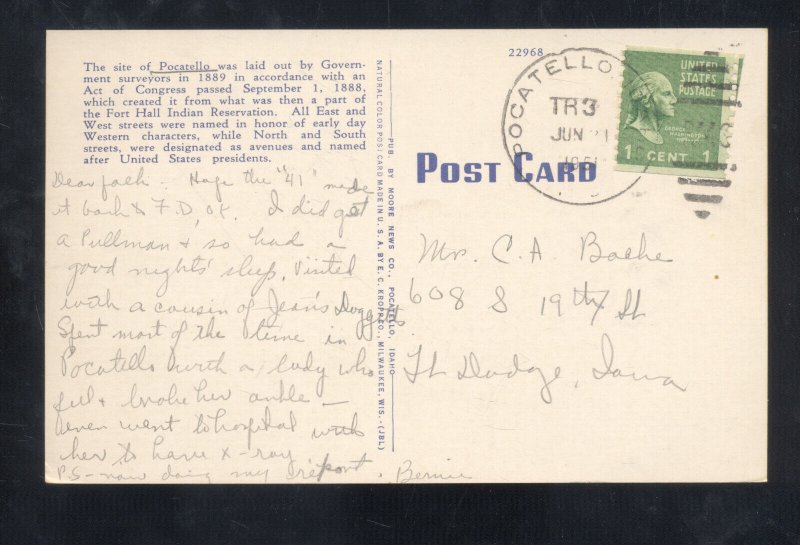 The site of Pocatello was laid out by Govern-
ment surveyors in 1889 in accordance with an
Act of Congress passed September 1, 1888,
which created it from what was then a part of
the Fort Hall Indian Reservation. All East and
West streets were named in honor of early day
Western characters, while North and South
streets, were designated as avenues and named
after United States presidents.
Dear folk. Hope the "41" made
it back to F.D. OK. I did get
a Pullman & so had a
good nights' sleep, Visited
with a cousin of Jean's
Spent most of the time in
Pocatello with a lady who
fell & broke her ankle —
even went to hospital with
her to have x-ray
P.S - now doing my report. Bernie
NATURAL COLOR POST CARD MADE IN U. S. A. BY E. C. KROPP CO., MILWAUKEE, WIS.-(JBL)
PUB. BY MOORE NEWS CO., POCATELLO, IDAHO
22968
POST CARD
POCATELLO
TR3
JUN 21
UNITED
STATES
POSTAGE
GEORGE
WASHINGTON
1 CENT 1
Mr. C. A
608 S 19th St
Ft Dodge, Iowa